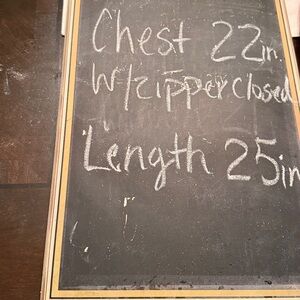 Chest 22in.
W/zipper closed
Length 25in